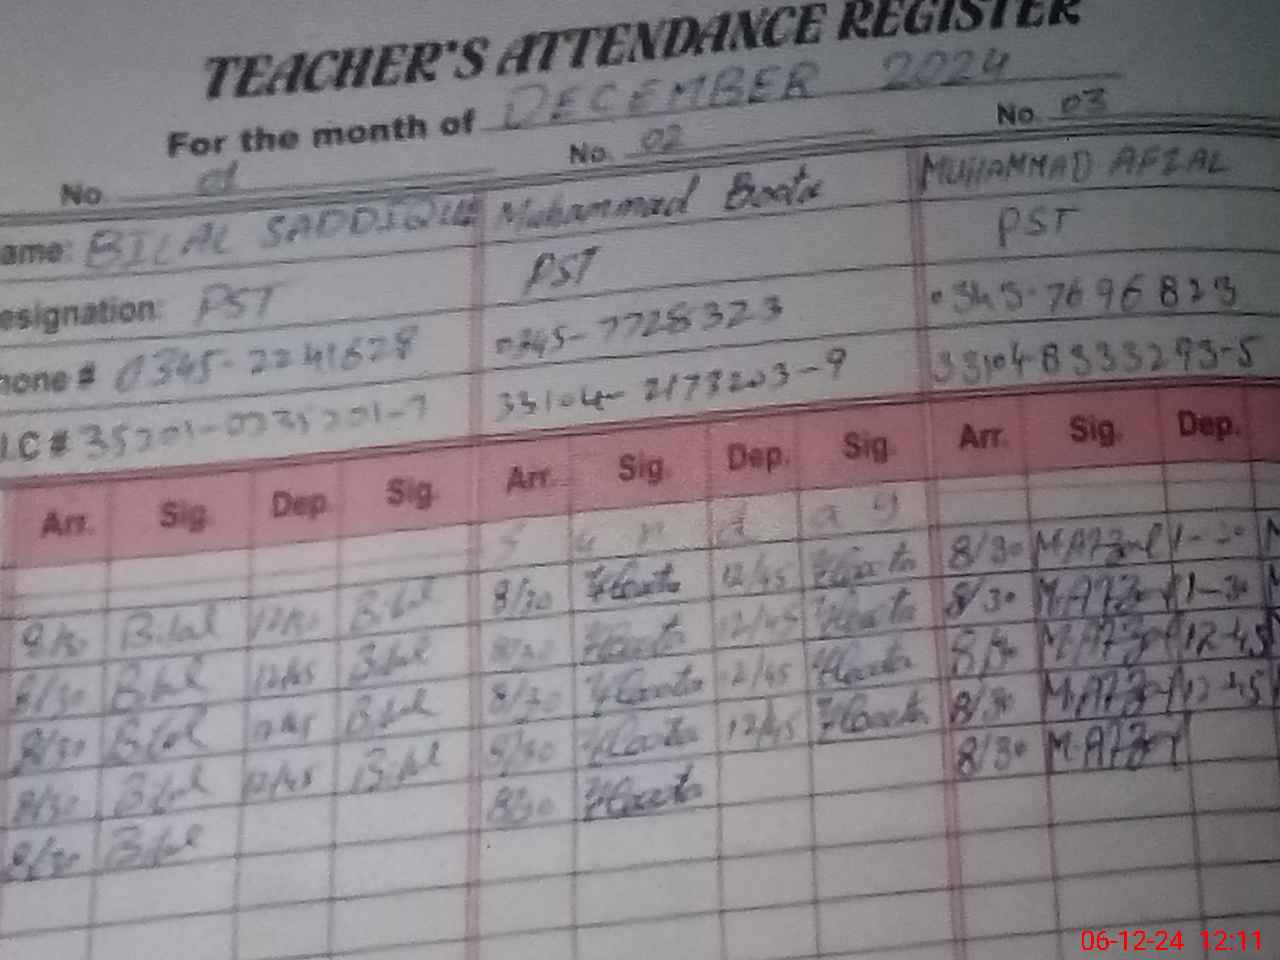 TEACHER'S ATTENDANCE REGISTER
For the month of DECEMBER 2024
No. 01 No. 02 No. 03
ame: BILAL SADDIQUE Muhammad Boota MUHAMMAD AFZAL
esignation: PST PST PST
hone # 0345-2241628 0345-7728323 0345-7696823
I.C # 35201-0235201-7 33104-2173203-9 33104-8333293-5
Arr. Sig. Dep. Sig. Arr. Sig. Dep. Sig. Arr. Sig. Dep.
S u n d a y
8/30 Bilal Bilal 8/30 Boota 12/45 Boota 8/30 M.Afzal 1-30
8/30 Bilal 12/45 Bilal 8/30 Boota 12/45 Boota 8/30 M.Afzal 1-30
8/30 Bilal 12/45 Bilal 8/30 Boota 12/45 Boota 8/30 M.Afzal 12-45
8/30 Bilal 12/45 Bilal 8/30 Boota 12/45 Boota 8/30 M.Afzal 12-45
8/30 Bilal 8/30 Boota 8/30 M.Afzal
06-12-24 12:11